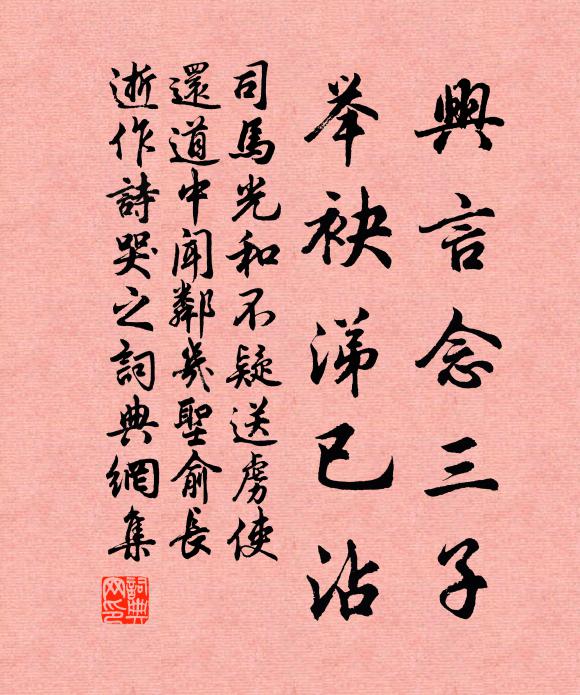 興言念三子
举袂涕已沾
司馬光和不疑送虜使
還道中聞鄰幾聖俞長
逝作詩哭之詞典網集
詞典
网印